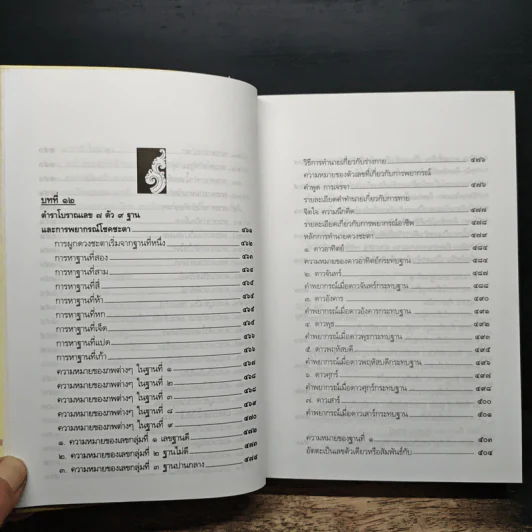 บทที่ ๑๒
ตำราโบราณเลข ๗ ตัว ๙ ฐาน
และการพยากรณ์โชคชะตา ๔๖๑
การผูกดวงชะตาเริ่มจากฐานที่หนึ่ง ๔๖๒
การหาฐานที่สอง ๔๖๓
การหาฐานที่สาม ๔๖๔
การหาฐานที่สี่ ๔๖๔
การหาฐานที่ห้า ๔๖๕
การหาฐานที่หก ๔๖๕
การหาฐานที่เจ็ด ๔๖๕
การหาฐานที่แปด ๔๖๖
การหาฐานที่เก้า ๔๖๖
ความหมายของภพต่างๆ ในฐานที่ ๑ ๔๖๗
ความหมายของภพต่างๆ ในฐานที่ ๒ ๔๖๘
ความหมายของภพต่างๆ ในฐานที่ ๓ ๔๖๘
ความหมายของภพต่างๆ ในฐานที่ ๘ ๔๖๙
ความหมายของภพต่างๆ ในฐานที่ ๙ ๔๗๐
๑. ความหมายของเลขกลุ่มที่ ๑ เลขฐานดี ๔๗๒
๒. ความหมายของเลขกลุ่มที่ ๒ ฐานไม่ดี ๔๗๓
๓. ความหมายของเลขกลุ่มที่ ๓ ฐานปานกลาง ๔๗๕
วิธีการทำนายเกี่ยวกับร่างกาย ๔๗๖
ความหมายของตัวเลขที่เกี่ยวกับการพยากรณ์
คำพูด การเจรจา ๔๗๖
รายละเอียดคำทำนายเกี่ยวกับการทาย
จิตใจ ความนึกคิด ๔๗๗
รายละเอียดเกี่ยวกับการพยากรณ์อาชีพ ๔๗๘
หลักการทำนายดวงชะตา ๔๘๔
๑. ดาวอาทิตย์ ๔๘๔
ความหมายของดาวอาทิตย์กระทบฐาน ๔๘๕
๒. ดาวจันทร์ ๔๘๗
คำพยากรณ์เมื่อดาวจันทร์กระทบฐาน ๔๘๘
๓. ดาวอังคาร ๔๙๐
คำพยากรณ์เมื่อดาวอังคารกระทบฐาน ๔๙๑
๔. ดาวพุธ ๔๙๒
คำพยากรณ์เมื่อดาวพุธกระทบฐาน ๔๙๔
๕. ดาวพฤหัสบดี ๔๙๕
คำพยากรณ์เมื่อดาวพฤหัสบดีกระทบฐาน ๔๙๖
๖. ดาวศุกร์ ๔๙๗
คำพยากรณ์เมื่อดาวศุกร์กระทบฐาน ๔๙๘
๗. ดาวเสาร์ ๕๐๑
คำพยากรณ์เมื่อดาวเสาร์กระทบฐาน ๕๐๑
ความหมายของฐานที่ ๑ ๕๐๓
อัตตะเป็นเลขตัวเดียวหรือสัมพันธ์กับ ๕๐๔